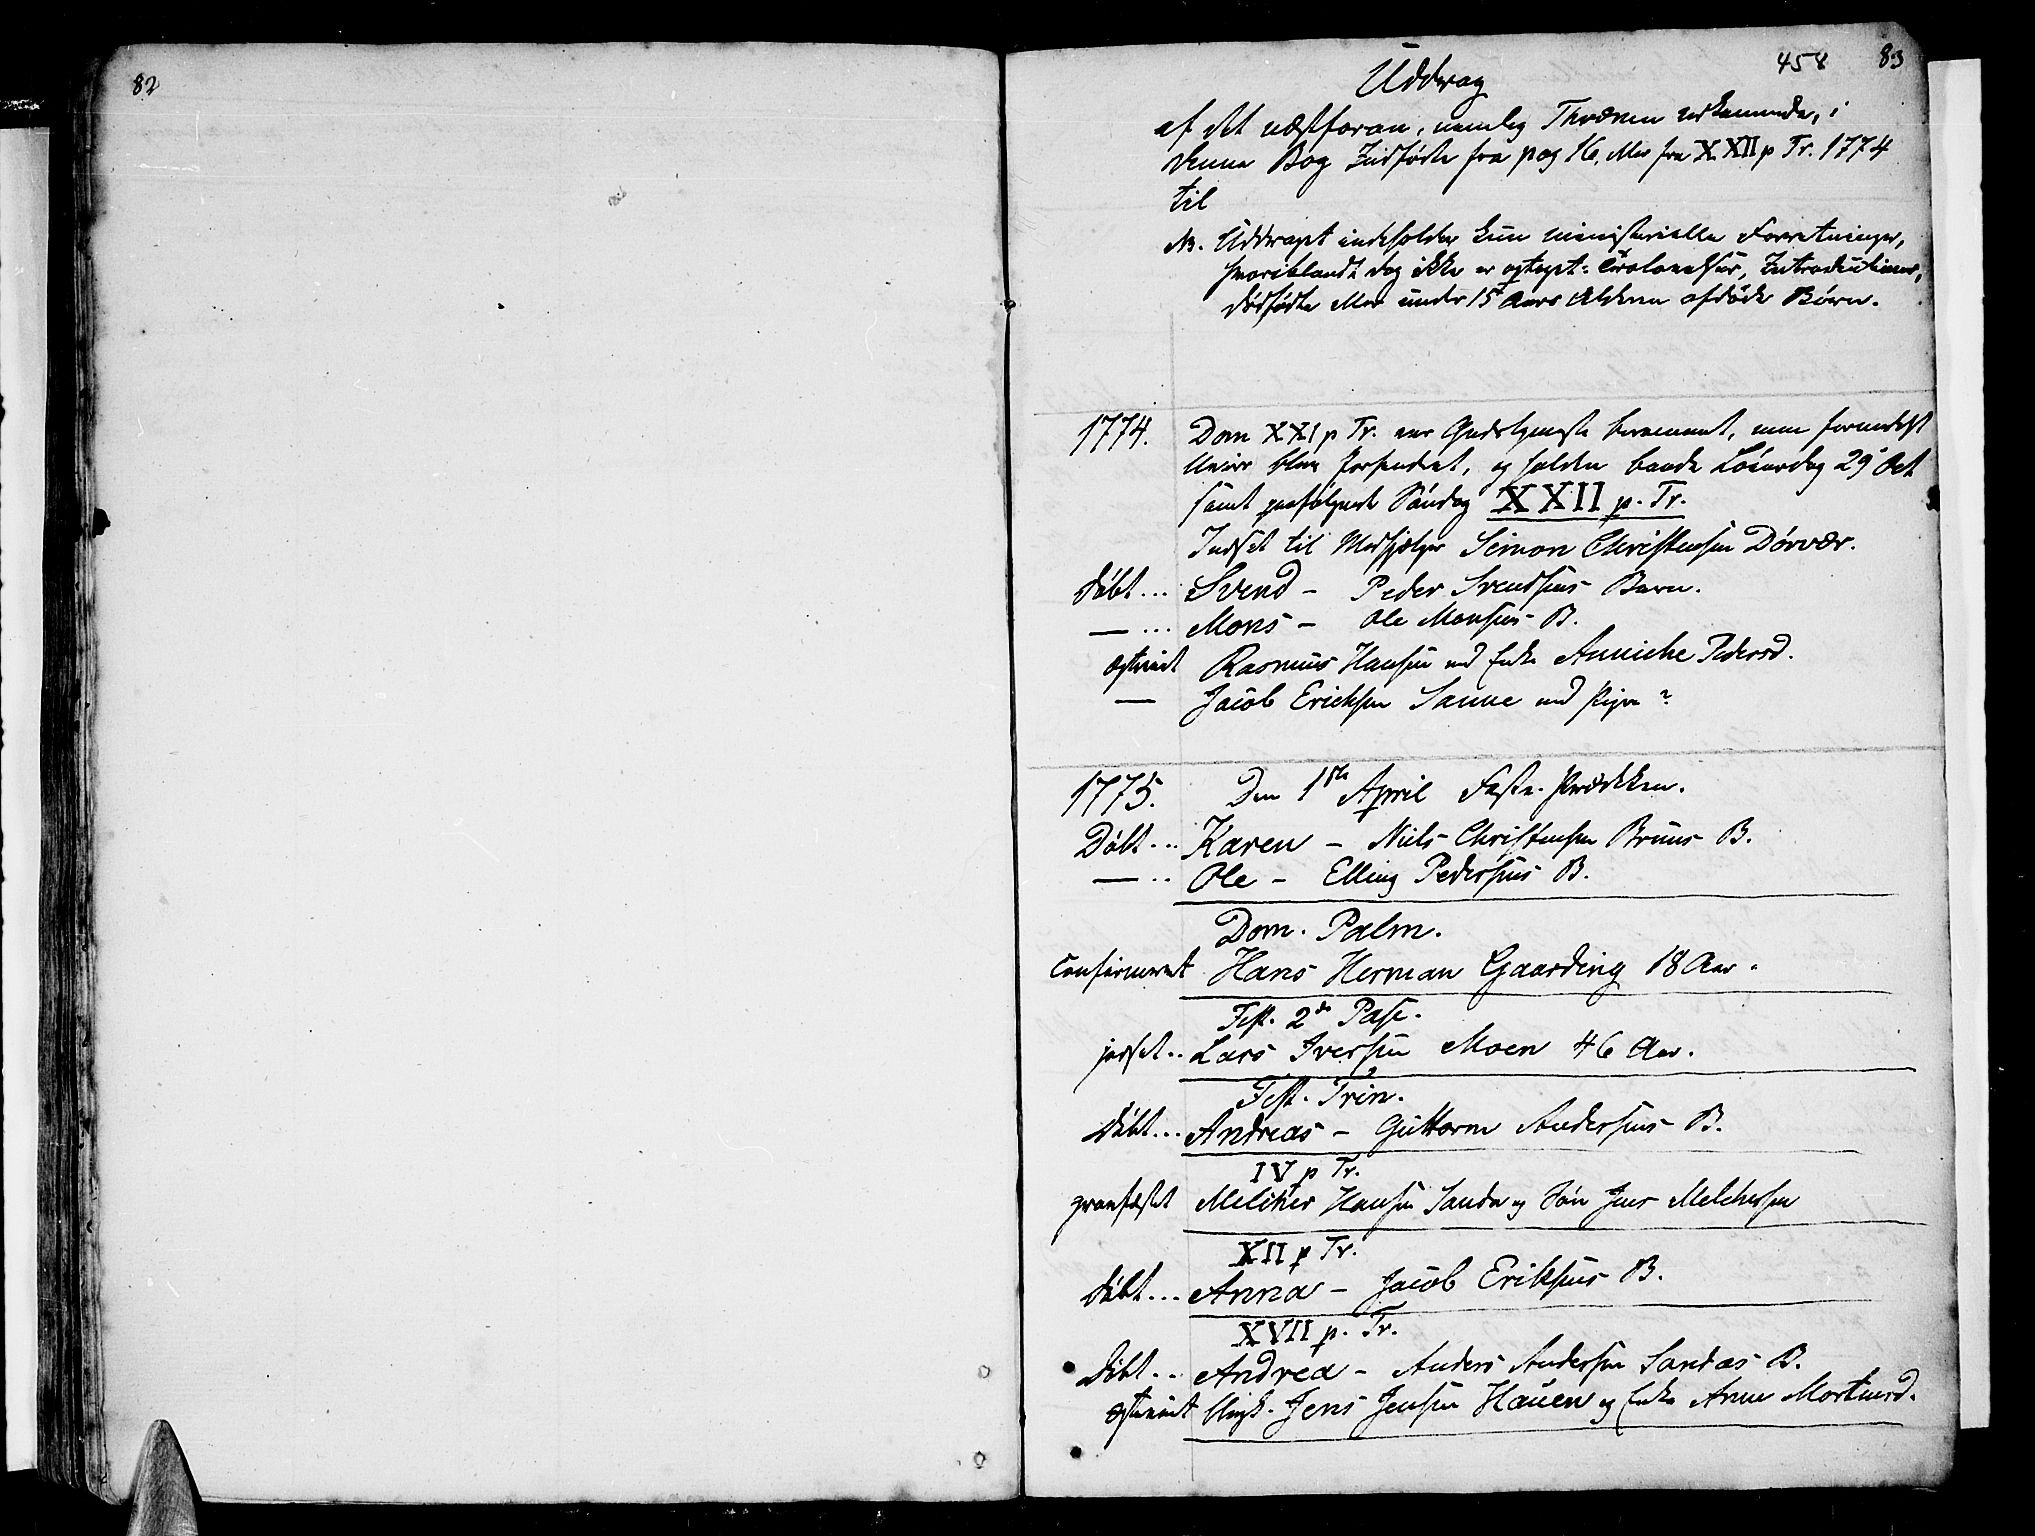 82
458 83
Uddrag
af det næstforan, nemlig Thrænen vedkommende, i
denne Bog Indførte fra pag 16, eller fra XXII p Tr. 1774
til
NB. Uddraget indeholder kun ministerielle Forretninger,
hvoriblandt dog ikke er optaget: Trolovelser, Introductioner,
dødfødte eller under 15 Aars Alderen afdøde Børn.
1774. Dom XXI p Tr. var Gudstjeneste berammet, men formedelst
Uveir blev forhindret, og holden baade Løverdag 29 Oct
samt paafølgende Søndag XXII p. Tr.
Indsat til Medhjelper Simon Christensen Dørvær.
Døbt... Svend - Peder Svendsens Barn.
— ... Mons - Ole Monsens B.
ægteviet Rasmus Hansen med Enke Anniche Pedersd.
— Jacob Ericksen Sanne med Pigen ?
1775. Den 1ste April Faste-Prædiken.
Døbt... Karen - Niels Christensen Bruns B.
— .. Ole - Elling Pedersens B.
Dom. Palm.
Confirmeret Hans Herman Gaarding 18 Aar.
Fest. 2da Pasc.
jordset.. Lars Iversen Moen 46 Aar.
Fest. Trin.
Døbt... Andreas - Guttorm Andersens B.
IV p Tr.
graufæstet Melcher Hansen Sanda og Søn Jens Melchersen
XII p Tr.
Døbt... Anna - Jacob Eriksens B.
XVII p. Tr.
Døbt.. Andrea - Anders Andersen Sandaes B.
ægteviet Ungk. Jens Jensen Hauen og Enke Anne Mortensd.